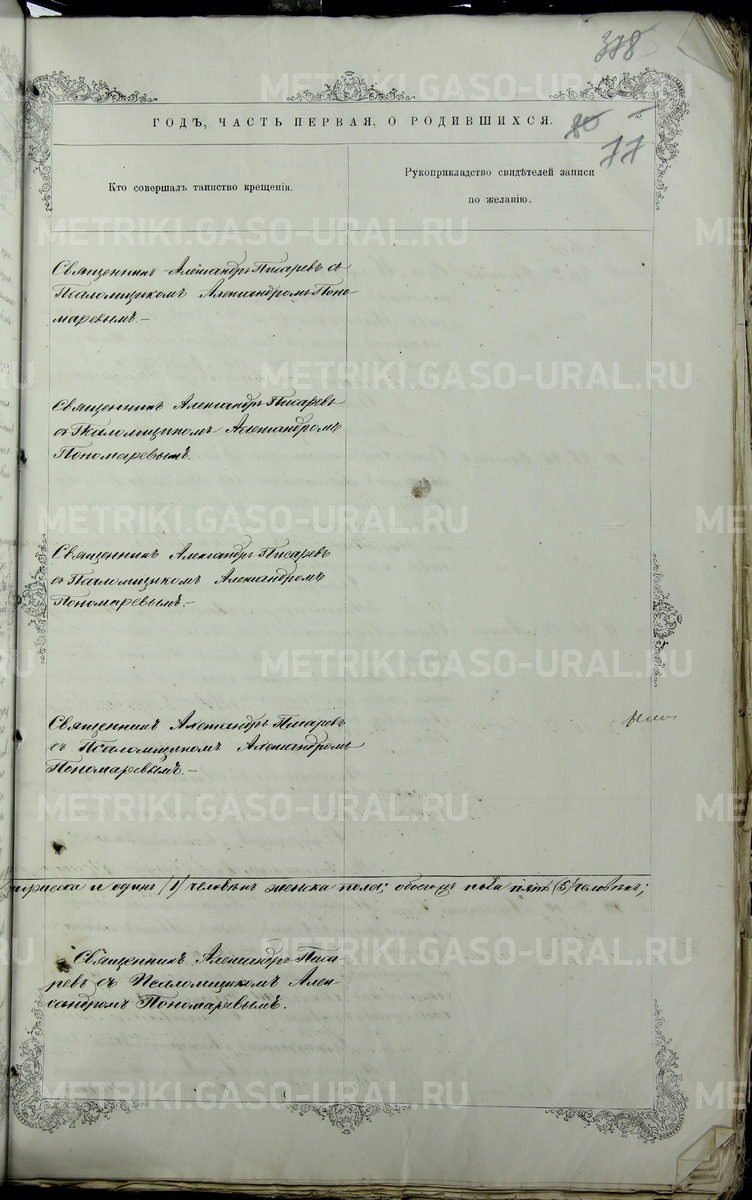 378
ГОДЪ, ЧАСТЬ ПЕРВАЯ, О РОДИВШИХСЯ.
80
77
Кто совершалъ таинство крещенія.
Рукоприкладство свидѣтелей записи
по желанію.
Священникъ Александръ Писаревъ съ
Псаломщикомъ Александромъ Поно-
маревымъ.-
Священникъ Александръ Писаревъ
съ Псаломщикомъ Александромъ
Пономаревымъ.
Священникъ Александръ Писаревъ
съ Псаломщикомъ Александромъ
Пономаревымъ.-
Священникъ Александръ Писаревъ
съ Псаломщикомъ Александромъ
Пономаревымъ.-
и одинъ /1/ человѣкъ женска пола; обоего пола пять (5) человѣкъ;
Священникъ Александръ Писа-
ревъ съ Псаломщикомъ Алек-
сандромъ Пономаревымъ.
METRIKI.GASO-URAL.RU